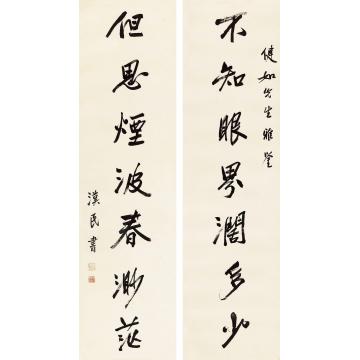 健如先生雅鑒
不知眼界濶多少
但思煙波春渺茫
漢民書